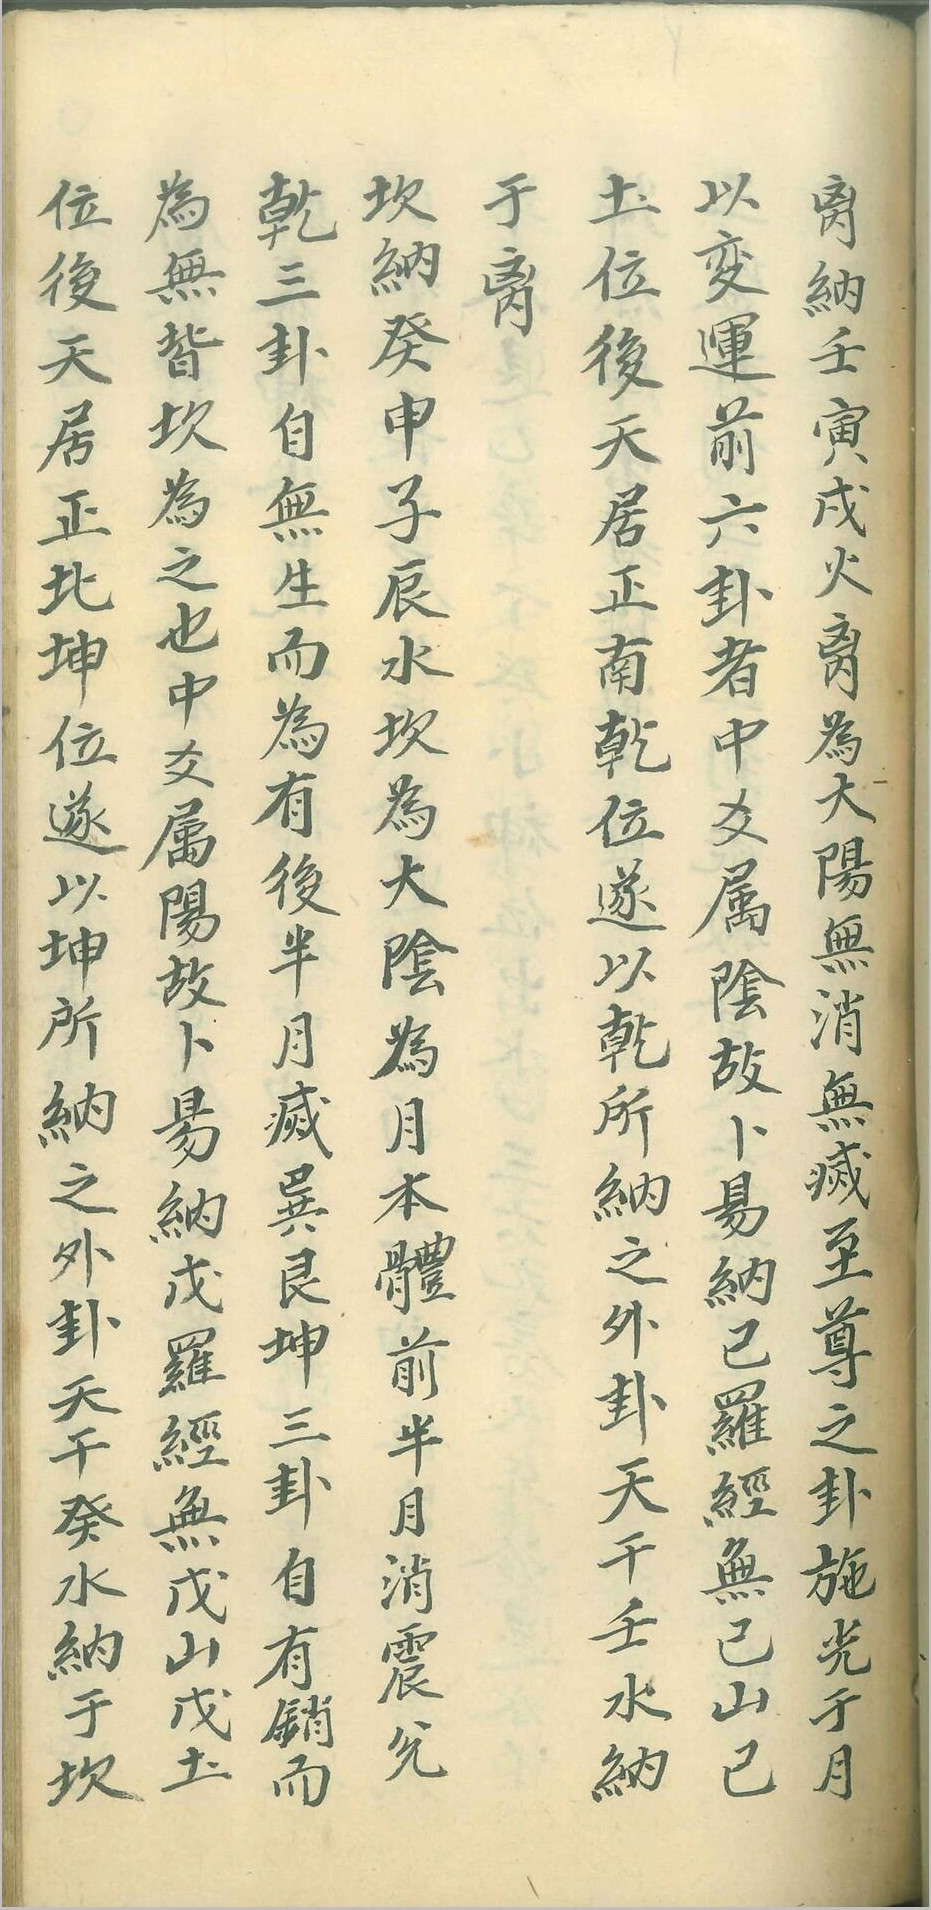 离納壬寅戌火离為大陽無消無滅至尊之卦施光于月
以变運前六卦者中爻属陰故卜昜納己羅經無己山己
土位後天居正南乾位遂以乾所納之外卦天干壬水納
于离
坎納癸申子辰水坎為大陰為月本體前半月消震兊
乾三卦自無生而為有後半月滅巽艮坤三卦自有銷而
為無皆坎為之也中爻属陽故卜昜納戊羅經無戊山戊土
位後天居正北坤位遂以坤所納之外卦天干癸水納于坎